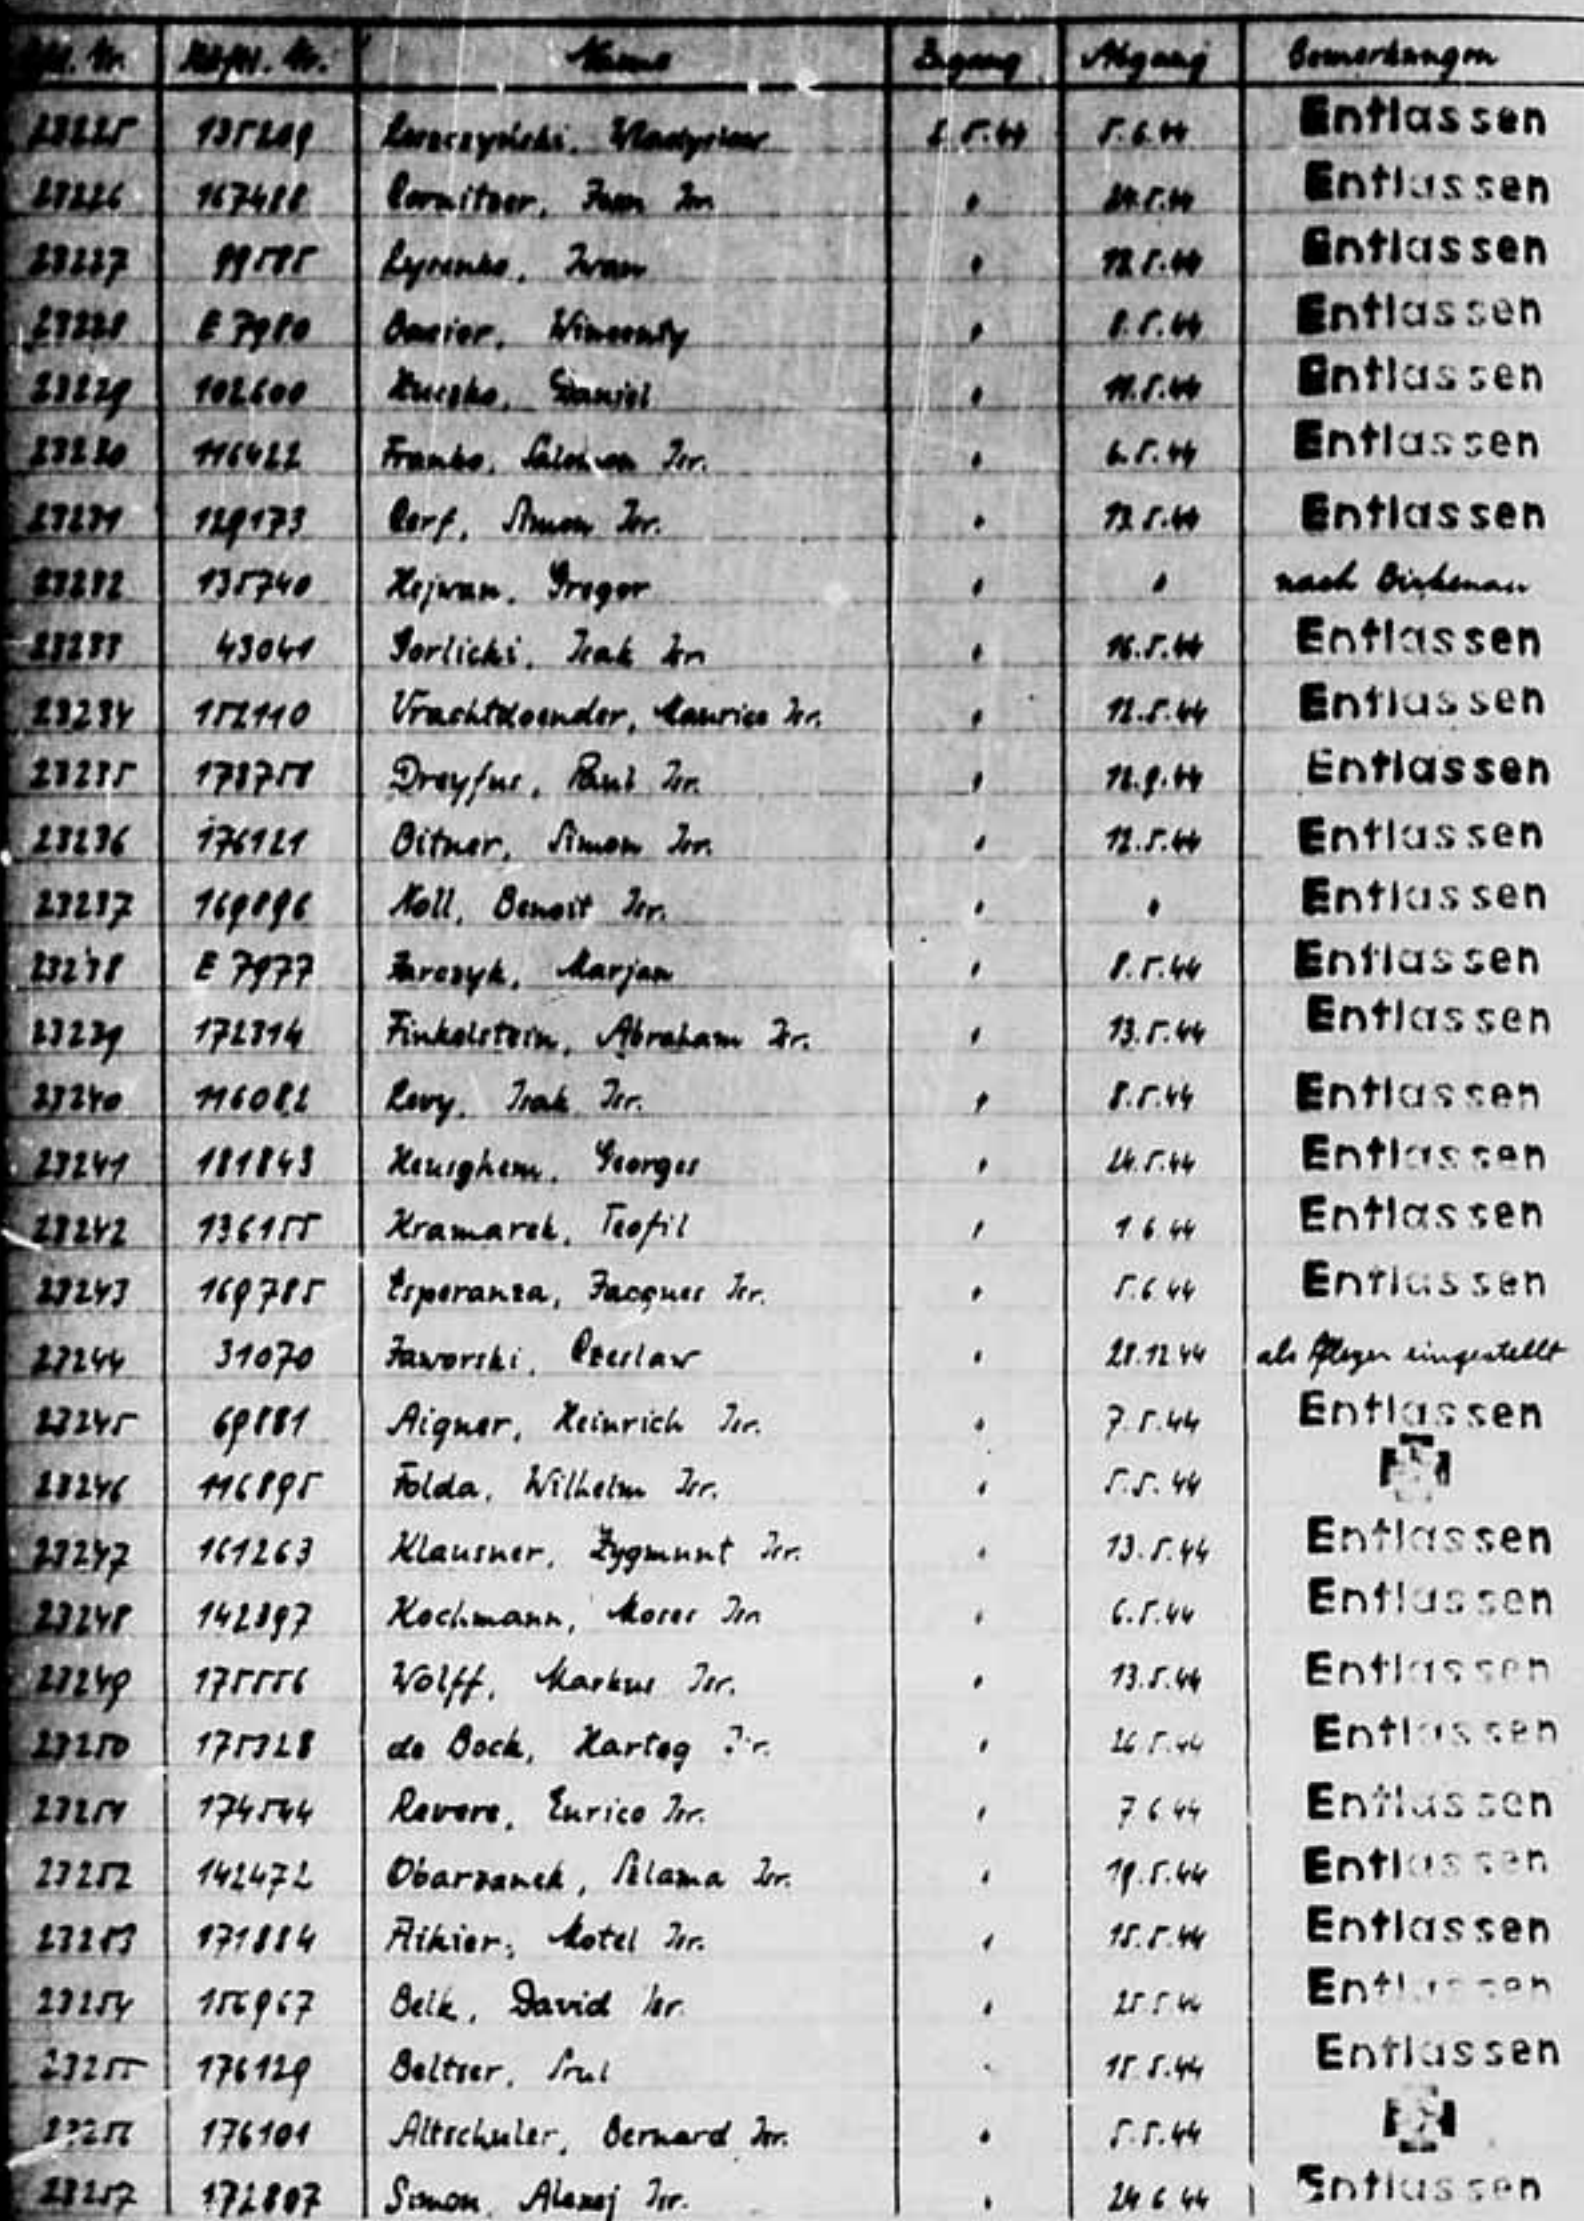 Name Zugang Abgang Bemerkungen
23225 135209 5.6.44 Entlassen
23226 167488 " Entlassen
23227 99585 Iwan " 12.5.44 Entlassen
23228 E 7980 " 8.5.44 Entlassen
23229 102600 Daniel " 11.5.44 Entlassen
23230 116422 Franko, Salomon Isr. " 6.5.44 Entlassen
23231 129173 Cerf, Simon Isr. " 12.5.44 Entlassen
23232 135740 Hejwan, Gregor " " nach Birkenau
23233 43041 Gorlicki, Isak Isr. " 16.5.44 Entlassen
23234 152110 Vrachtdoender, Maurice Isr. " 12.5.44 Entlassen
23235 173758 Dreyfus, Paul Isr. " 12.9.44 Entlassen
23236 176121 Bitner, Simon Isr. " 12.5.44 Entlassen
23237 169896 Noll, Benoit Isr. " " Entlassen
23238 E 7977 Marjan " 8.5.44 Entlassen
23239 172314 Finkelstein, Abraham Isr. " 13.5.44 Entlassen
23240 116082 Levy, Isak Isr. " 8.5.44 Entlassen
23241 181843 Heusghem, Georges " 24.5.44 Entlassen
23242 136155 Kramarek, Teofil " 1 6 44 Entlassen
23243 169785 Esperanza, Jacques Isr. " 5.6 44 Entlassen
23244 31070 Jaworski, Czeslaw " 28.12 44 als Pfleger eingestellt
23245 69881 Aigner, Heinrich Isr. " 7.5.44 Entlassen
23246 116895 Folda, Wilhelm Isr. " 5.5.44
23247 161263 Klausner, Zygmunt Isr. " 13.5.44 Entlassen
23248 142397 Kochmann, Moses Isr. " 6.5.44 Entlassen
23249 175556 Wolff, Markus Isr. " 13.5.44 Entlassen
23250 175328 de Bock, Hartog Isr. " 26 5.44 Entlassen
23251 174544 Revere, Enrico Isr. " 7 6 44 Entlassen
23252 142472 Obarzanek, Szlama Isr. " 19.5.44 Entlassen
23253 171884 Motel Isr. " 15.5.44 Entlassen
23254 156967 Belk, David Isr. " 25 5 44 Entlassen
23255 176129 Beltser, Srul " 15 5.44 Entlassen
23256 176101 Altschuler, Bernard Isr. " 5.5.44
23257 172807 Simon, Alexej Isr. " 24 6 44 Entlassen